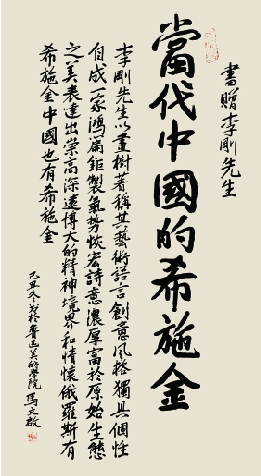 書贈李剛先生
當代中國的希施金
李剛先生以畫樹著稱其藝術語言創意風格獨具個性
自成一家鴻篇鉅製氣勢恢宏詩意濃厚富於原始生態
之美表達出崇高深遠博大的精神境界和情懷俄羅斯有
希施金中國也有希施金
己丑冬 於魯迅美術學院 馬文啟